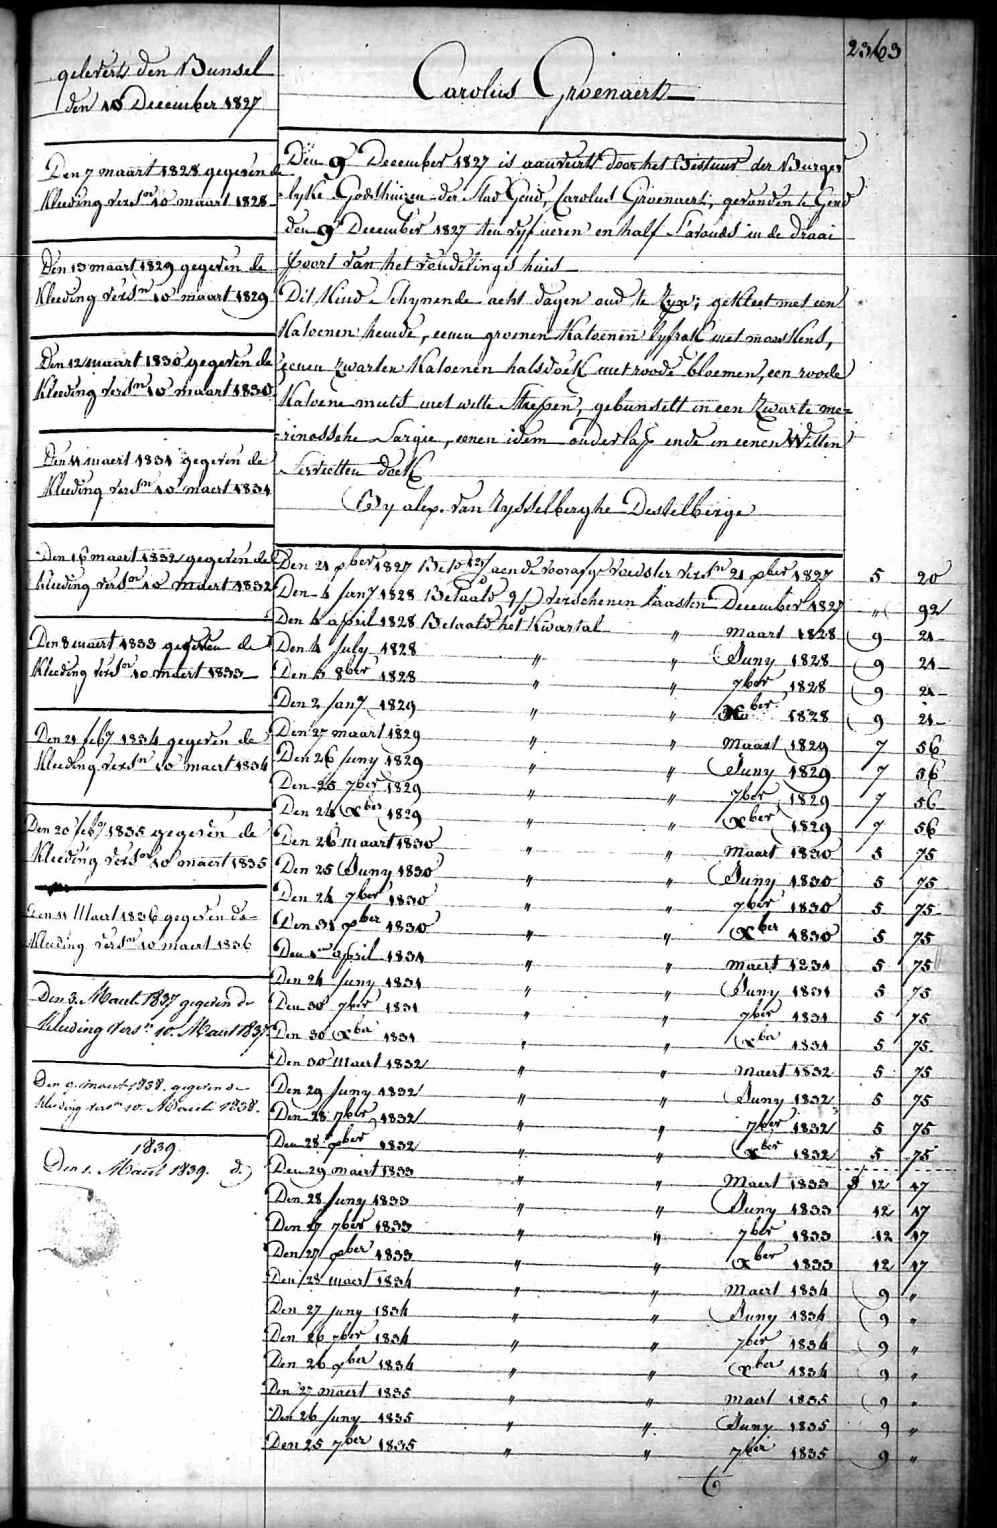 2363
gelevert den Bunsel
den 10 December 1827
Den 7 maart 1828 gegeven de
Kleeding versn 10 maart 1828
Den 13 maart 1829 gegeven de
Kleeding versn 10 maart 1829
Den 12 maart 1830 gegeven de
Kleeding versn 10 maart 1830
Den 11 maert 1831 gegeven de
Kleeding versn 10 maert 1831
Den 16 maert 1832 gegeven de
kleeding versn 10 maert 1832
Den 8 maert 1833 gegeven de
Kleeding versn 10 maert 1833
Den 21 feby 1834 gegeven de
Kleeding versn 10 maert 1834
Den 20 feby 1835 gegeven de
Kleeding versn 10 maert 1835
Den 11 Maert 1836 gegeven de
Kleeding versn 10 maert 1836
Den 3. Maert 1837 gegeven de
Kleeding versn 10. Maert 1837.
Den 9. maert 1838. gegeven de
Kleeding versn 10. Maert 1838.
1839
Den 1. Maert 1839. d.
Carolus Groenaert
Den 9n December 1827 is aanveirt door het Bestuur der Burger
lyke Godshuizen der Stad Gend, Carolus Groenaert, gevonden te Gend
den 9n December 1827 ten vyf ueren en half s'avonds in de draai
poort van het vondelings huis
Dit Kind schynende acht dagen oud te zyn; gekleet met een
Katoenen hemde, eenen groenen Katoenen lyfrok met mouwkens,
eenen zwarten Katoenen halsdoek met roode bloemen, een roode
Katoene muts met witte strepen, gebunselt in een zwarte me=
rinossche Sargie, eenen idem onderlap ende in eenen Witten
Servietten doek
By alex. van Rysselberghe Destelberge
Den 21 xber 1827 Bet aende voorafge voedster versn 21 xber 1827 5 20
Den 4 jany 1828 Betaald verschenen laasten December 1827 " 92
Den 4 april 1828 Betaald het Kwartal " maart 1828 9 21
Den 4 July 1828 " " Juny 1828 9 21
Den 3 8ber 1828 " " 7ber 1828 9 21
Den 2 jany 1829 " " Xber 1828 9 21
Den 27 maart 1829 " " maart 1829 7 56
Den 26 juny 1829 " " Juny 1829 7 56
Den 25 7ber 1829 " " 7ber 1829 7 56
Den 24 Xber 1829 " " Xber 1829 7 56
Den 26 maart 1830 " " maart 1830 5 75
Den 25 Juny 1830 " " Juny 1830 5 75
Den 24 7ber 1830 " " 7ber 1830 5 75
Den 31 xber 1830 " " Xber 1830 5 75
Den 1n april 1831 " " maert 1831 5 75
Den 24 juny 1831 " " Juny 1831 5 75
Den 30 7ber 1831 " " 7ber 1831 5 75
Den 30 Xber 1831 " " Xber 1831 5 75
Den 30 maert 1832 " " maert 1832 5 75
Den 29 juny 1832 " " Juny 1832 5 75
Den 28 7ber 1832 " " 7ber 1832 5 75
Den 28 xber 1832 " " Xber 1832 5 75
Den 29 maert 1833 " " Maert 1833 12 17
Den 28 juny 1833 " " Juny 1833 12 17
Den 27 7ber 1833 " " 7ber 1833 12 17
Den 27 xber 1833 " " Xber 1833 12 17
Den 28 maert 1834 " " Maert 1834 9 "
Den 27 juny 1834 " " Juny 1834 9 "
Den 26 7ber 1834 " " 7ber 1834 9 "
Den 26 xber 1834 " " Xber 1834 9 "
Den 27 maert 1835 " " maert 1835 9 "
Den 26 juny 1835 " " Juny 1835 9 "
Den 25 7ber 1835 " " 7ber 1835 9 "